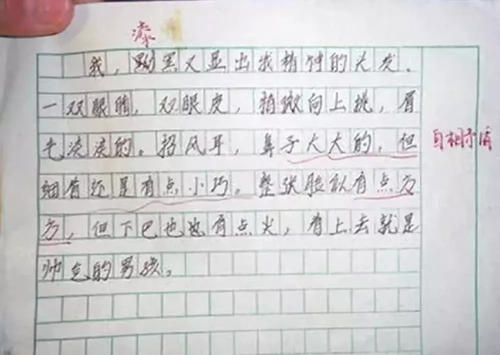 漆
我，黝黑又显出我精神的头发、
一双眼睛，双眼皮，稍微向上挑，眉
毛淡淡的。招风耳，鼻子大大的，但
细看还是有点小巧。整张脸似有点方
方，但下巴也有点尖，看上去就是
帅气的男孩。
自相矛盾